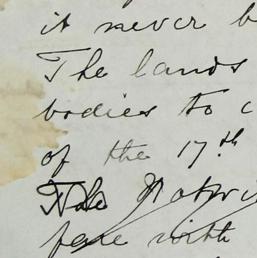 it never b
The lands
bodies to c
of the 17th
The
with